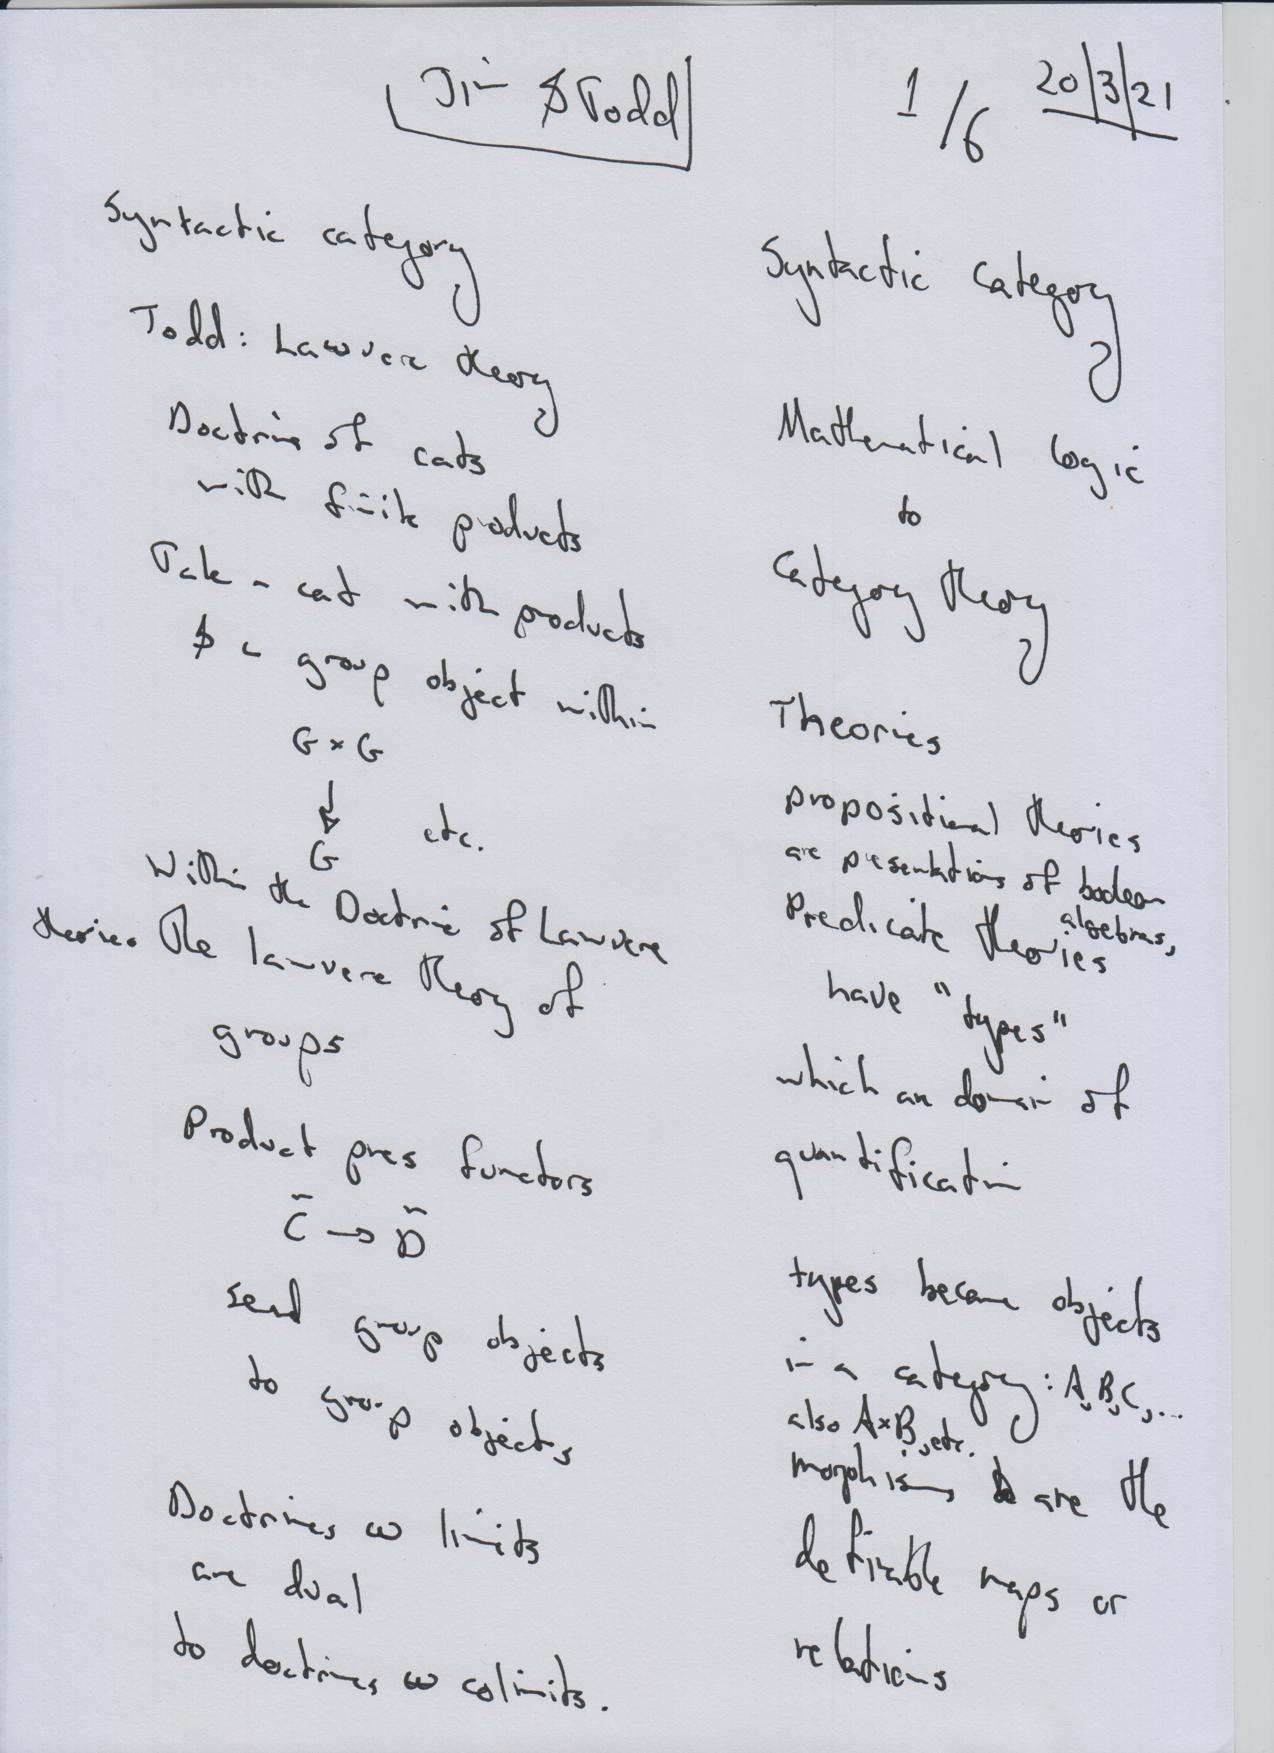 Jim & Todd
1/6
20/3/21
Syntactic category
Todd: Lawvere theory
Doctrine of cats
with finite products
Take a cat with products
& a group object within
G × G
↓
G
etc.
Within the Doctrine of Lawvere
theories the lawvere theory of
groups
Product pres functors
C̃ → D̃
send group objects
to group objects
Doctrines w limits
are dual
to doctrines w colimits.
Syntactic Category
Mathematical logic
to
Category theory
Theories
propositional theories
are presentations of boolean
algebras,
Predicate theories
have "types"
which are domain of
quantification
types become objects
in a category: A, B, C, ...
also A×B, etc.
morphisms are the
definable maps or
relations